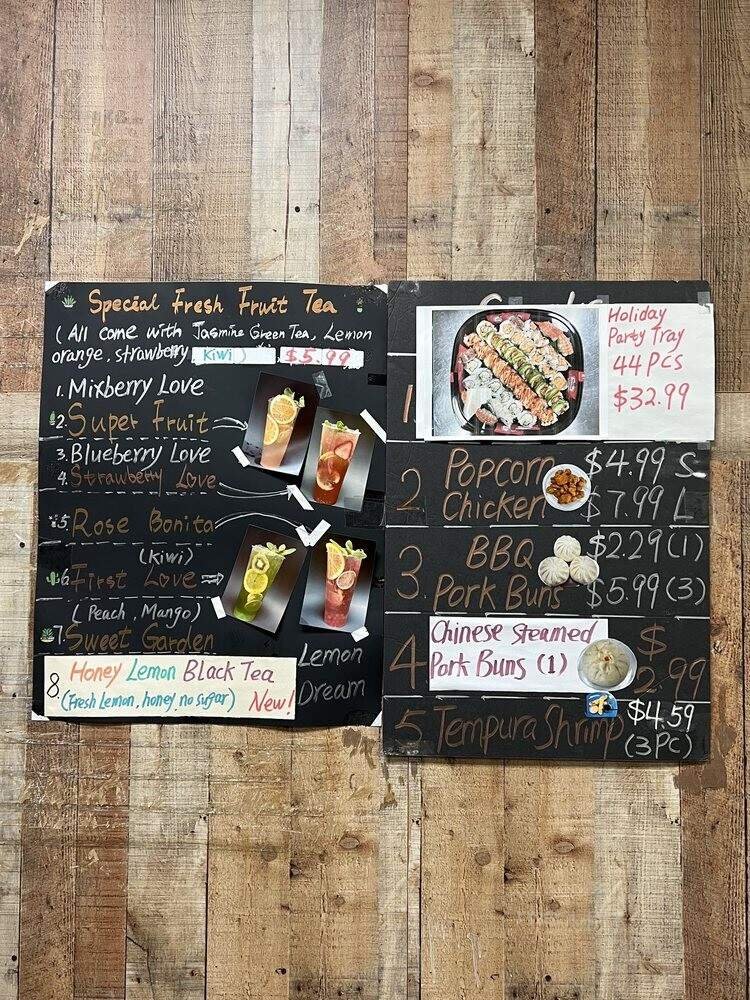 Special Fresh Fruit Tea
(All come with Jasmine Green Tea, Lemon
orange, strawberry, Kiwi) $5.99
1. Mixberry Love
2. Super Fruit
3. Blueberry Love
4. Strawberry Love
5. Rose Bonita
(Kiwi)
6. First Love
(Peach, Mango)
7. Sweet Garden
8. Honey Lemon Black Tea
(Fresh Lemon, honey, no sugar) New!
Lemon
Dream
1.
Holiday
Party Tray
44 PCS
$32.99
2. Popcorn $4.99 S
Chicken $7.99 L
3. BBQ $2.29 (1)
Pork Buns $5.99 (3)
4. Chinese Steamed
Pork Buns (1) $2.99
5. Tempura Shrimp $4.59
(3PC)